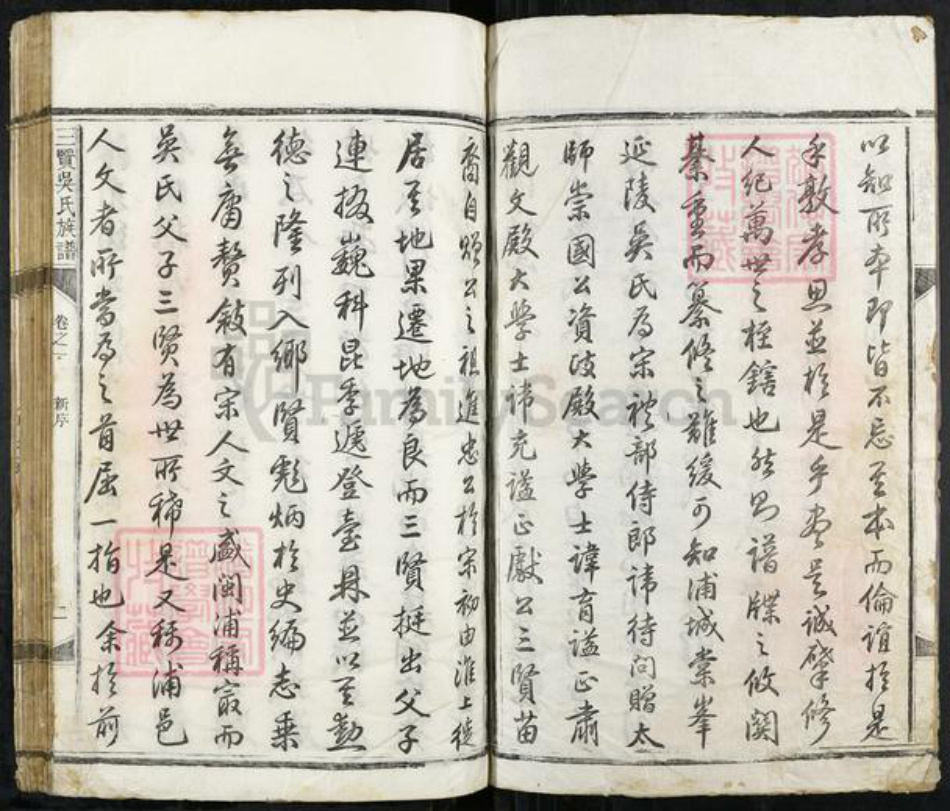 以知所本即皆不忘其本而倫誼於是
乎敦孝思並於是乎生是誠肇修
人紀萬世之枢鎋也然則譜牒之攸関
綦重而纂修之難緩可知浦城棠峯
延陵吳氏為宋禮部侍郎諱待問贈太
師崇國公資政殿大學士諱育謚正肅
觀文殿大學士諱充謚正獻公三賢苗
裔自贈公之祖進忠公於宋初由淮上徙
居其地果遷地為良而三賢挺出父子
連掇巍科昆季遞登臺鼎並以其勳
德之隆列入鄉賢彪炳於史編志乘
無庸贅敍有宋人文之盛閩浦稱最而
吳氏父子三賢為世所稀是又稱浦邑
人文者所當為之首屈一指也余於前
三賢吳氏族譜 卷之 新序 二
FamilySearch